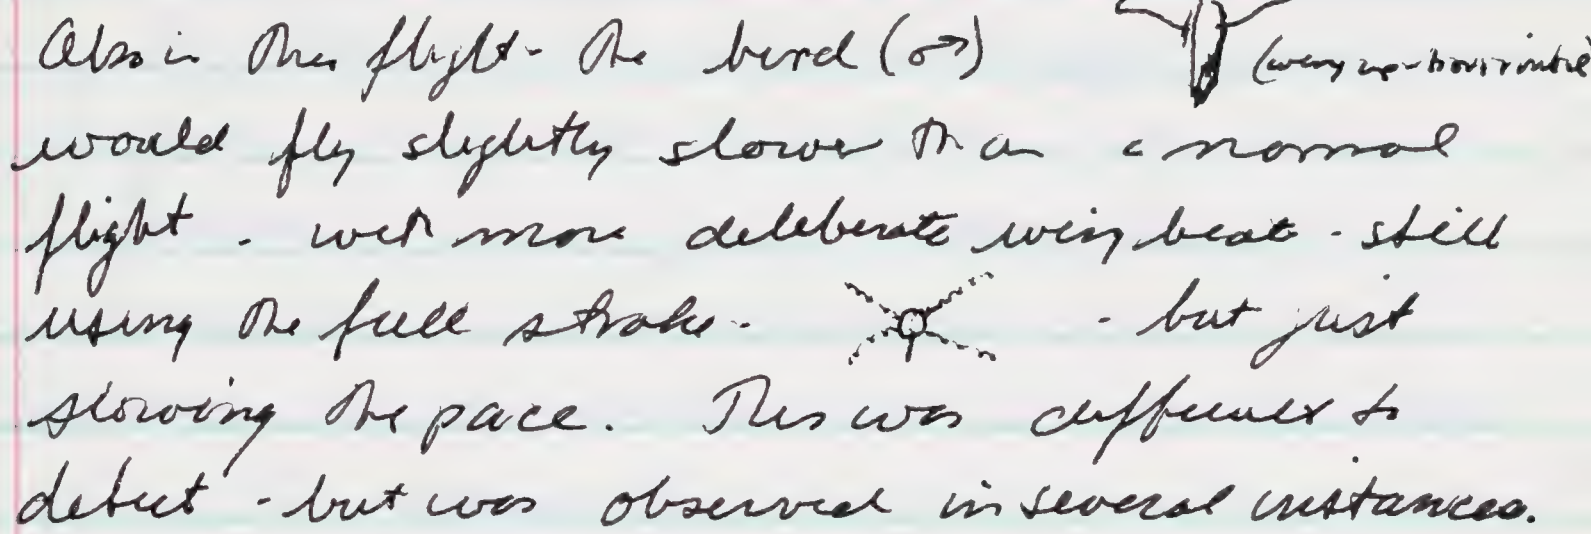 Also in this flight - the bird (♂)
(wing up-horizontal
would fly slightly slower than a normal
flight - with more deliberate wing beat - still
using the full stroke - - but just
slowing the pace. This was difficult to
detect - but was observed in several instances.